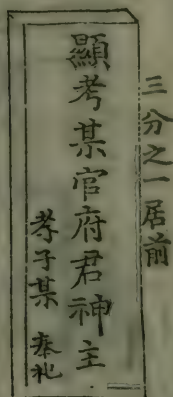 三分之一居前
顯考某官府君神主
孝子某 奉祀